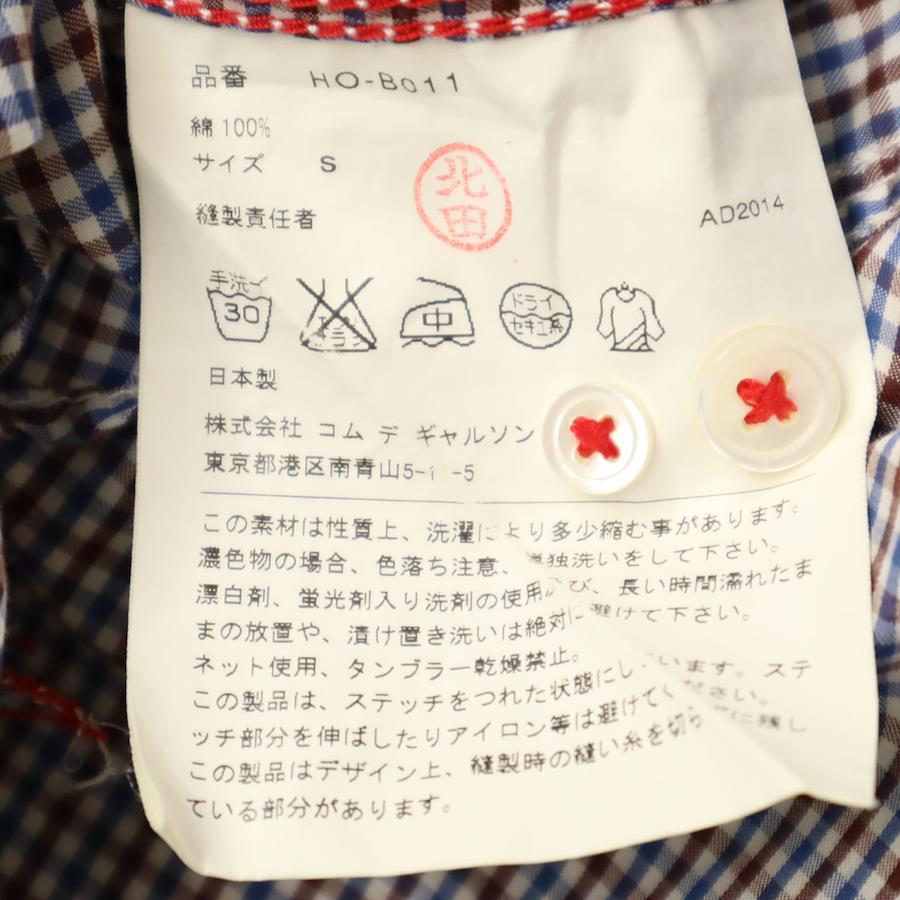 品番 HO-B011
綿 100%
サイズ S
縫製責任者 北田 AD2014
手洗イ 30 中 ドライ セキユ系
日本製
株式会社 コム デ ギャルソン
東京都港区南青山5-11-5
この素材は性質上、洗濯により多少縮む事があります。
濃色物の場合、色落ち注意、単独洗いをして下さい。
漂白剤、蛍光剤入り洗剤の使用及び、長い時間濡れたま
まの放置や、漬け置き洗いは絶対に避けて下さい。
ネット使用、タンブラー乾燥禁止。
この製品は、ステッチをつれた状態にしています。ステ
ッチ部分を伸ばしたりアイロン等は避けてください。
この製品はデザイン上、縫製時の縫い糸を切らずに残し
ている部分があります。